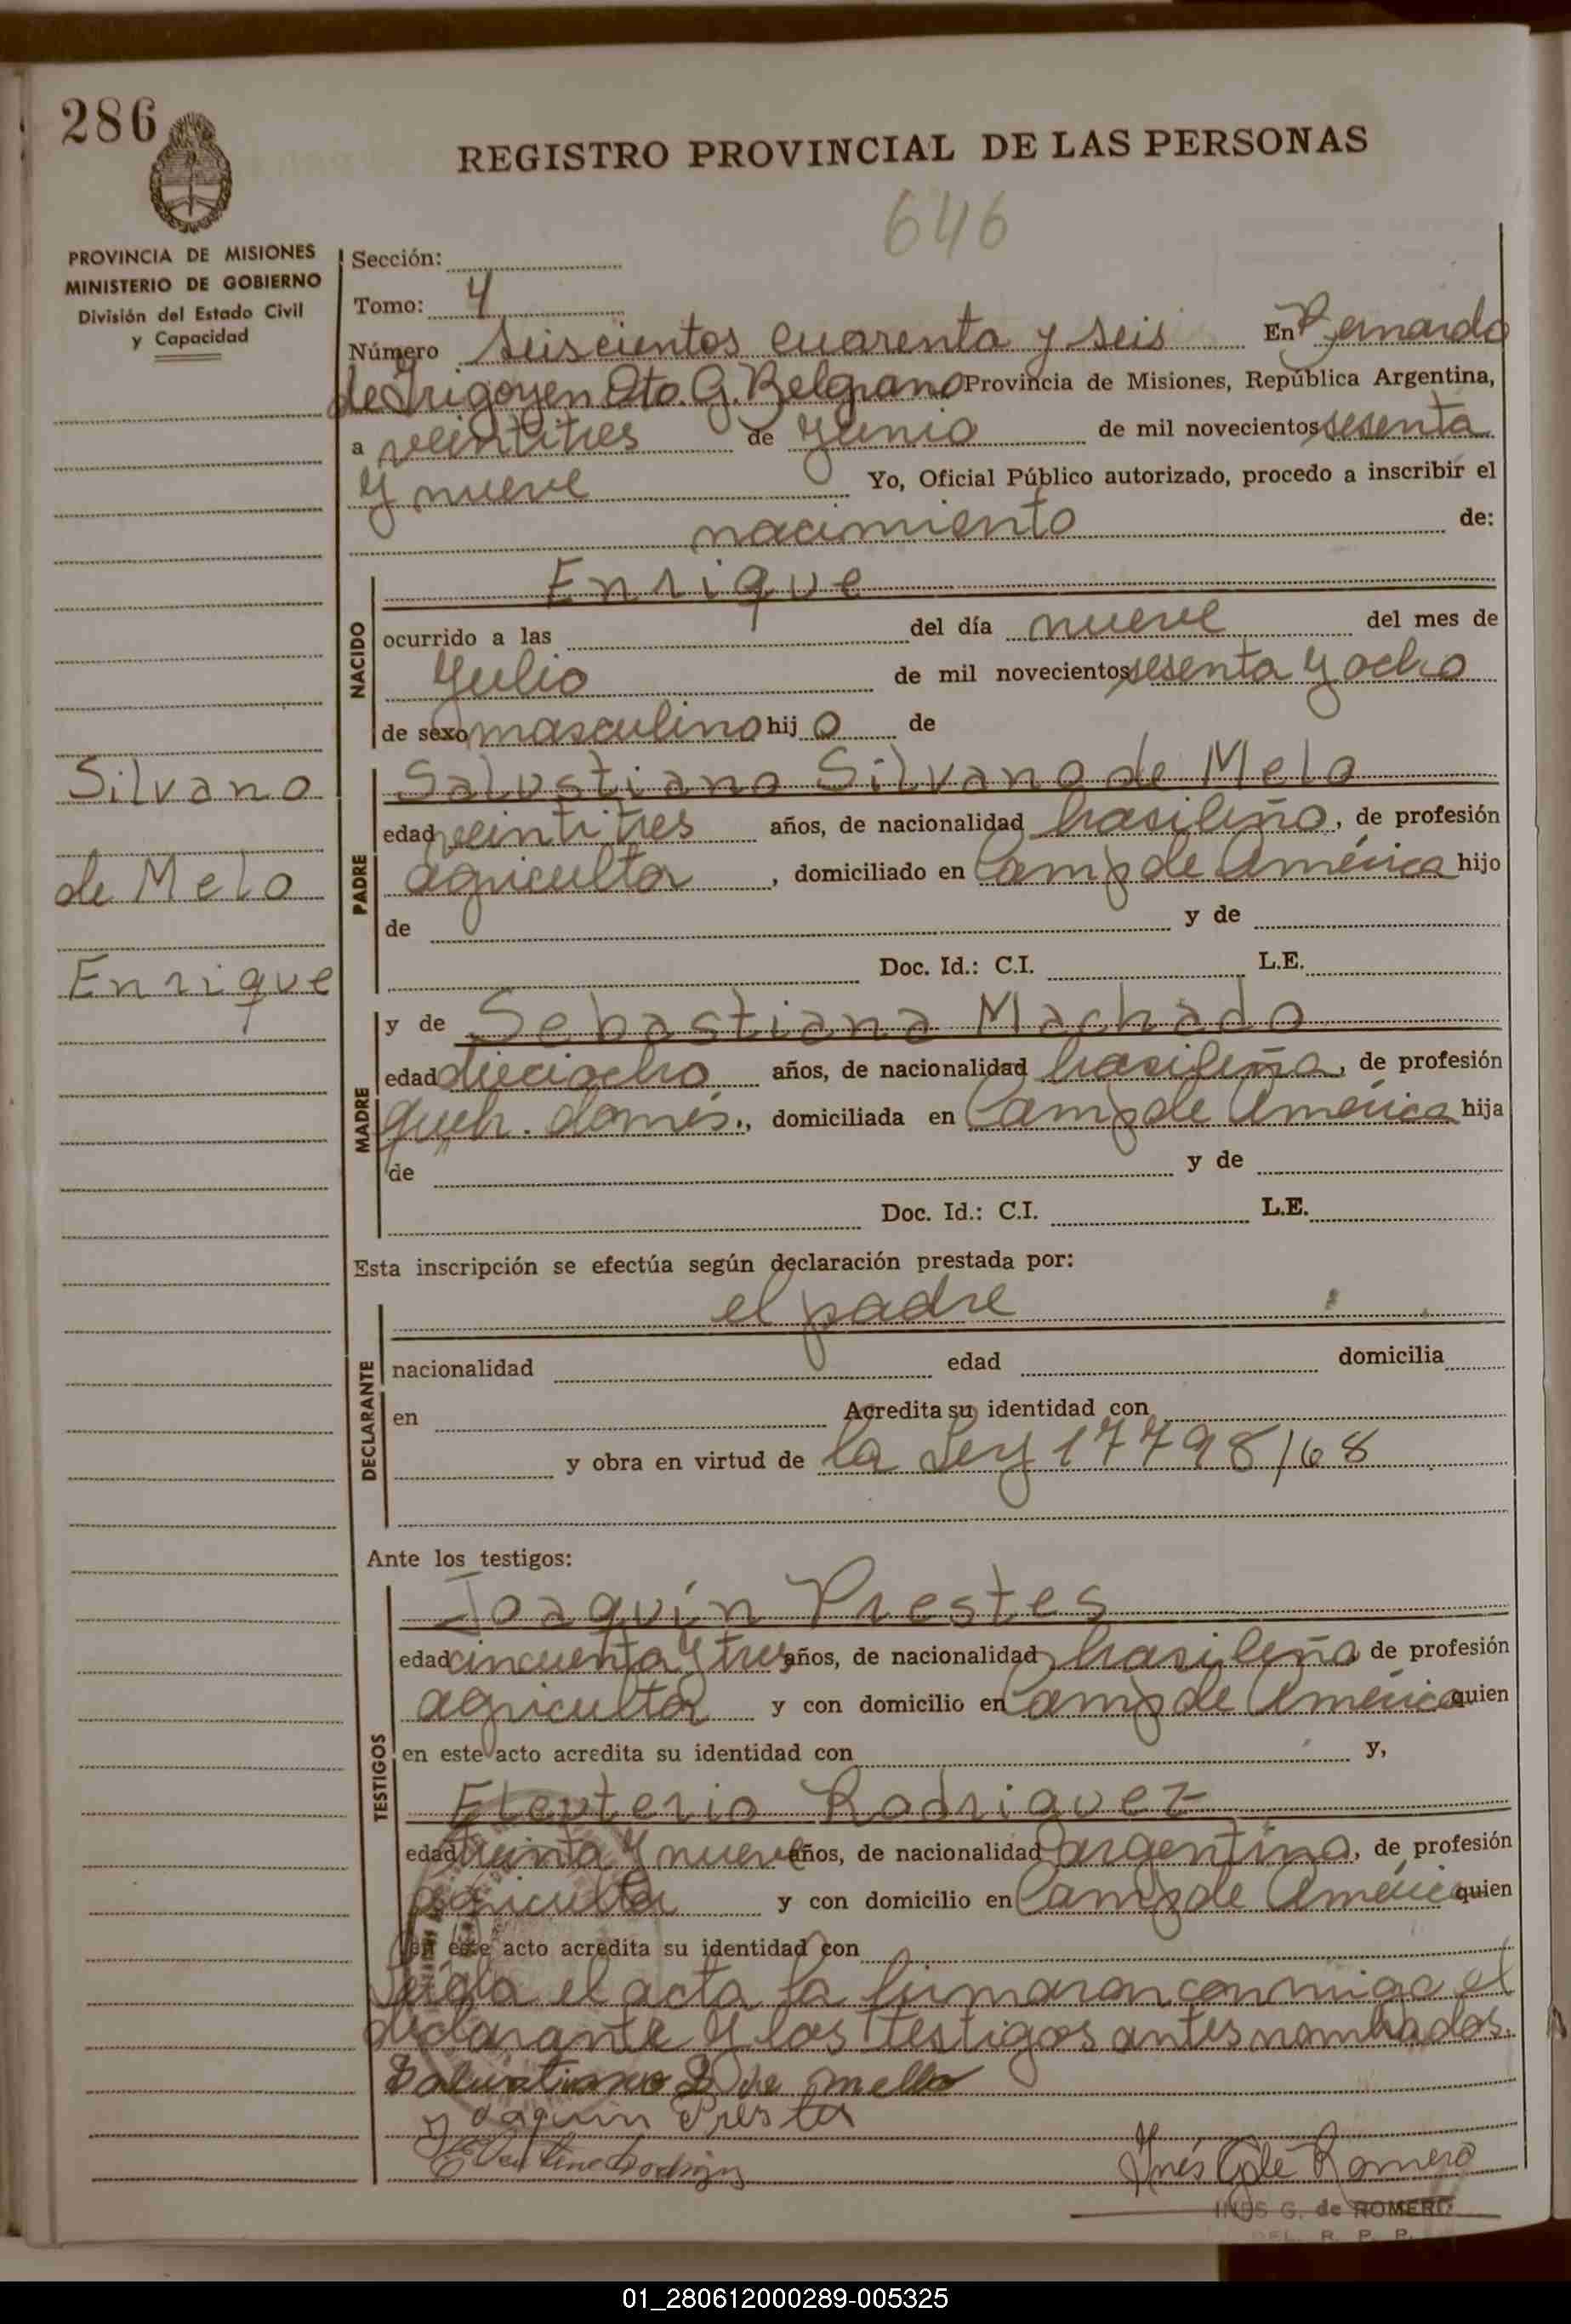 286
REGISTRO PROVINCIAL DE LAS PERSONAS
646
PROVINCIA DE MISIONES
MINISTERIO DE GOBIERNO
División del Estado Civil
y Capacidad
Sección:
Tomo: 4
Número seiscientos cuarenta y seis En Bernardo
de Irigoyen Dto. G. Belgrano Provincia de Misiones, República Argentina,
a veintitres de Junio de mil novecientos sesenta
y nueve Yo, Oficial Público autorizado, procedo a inscribir el
nacimiento de:
NACIDO
Enrique
ocurrido a las del día nueve del mes de
Julio de mil novecientos sesenta y ocho
de sexo masculino hij o de
Silvano
de Melo
Enrique
PADRE
Salustiano Silvano de Melo
edad veintitres años, de nacionalidad brasileño, de profesión
agricultor, domiciliado en Camp de América hijo
de y de
Doc. Id.: C.I. L.E.
MADRE
y de Sebastiana Machado
edad dieciocho años, de nacionalidad brasileña, de profesión
queh. domés., domiciliada en Camp de América hija
de y de
Doc. Id.: C.I. L.E.
Esta inscripción se efectúa según declaración prestada por:
DECLARANTE
el padre
nacionalidad edad domicilia
en Acredita su identidad con
y obra en virtud de la Ley 17798/68
Ante los testigos:
TESTIGOS
Joaquín Prestes
edad cincuenta y tres años, de nacionalidad brasileña de profesión
agricultor y con domicilio en Camp de América quien
en este acto acredita su identidad con y,
Eleuterio Rodriguez
edad treinta y nueve años, de nacionalidad argentina, de profesión
agricultor y con domicilio en Camp de América quien
en este acto acredita su identidad con
Leída el acta la firmaron conmigo el
declarante y los testigos antes nombrados.
Salustiano S de mello
Joaquin Prestes
Inés G de Romero
INES G. de ROMERO
DEL. R. P. P.
01_280612000289-005325